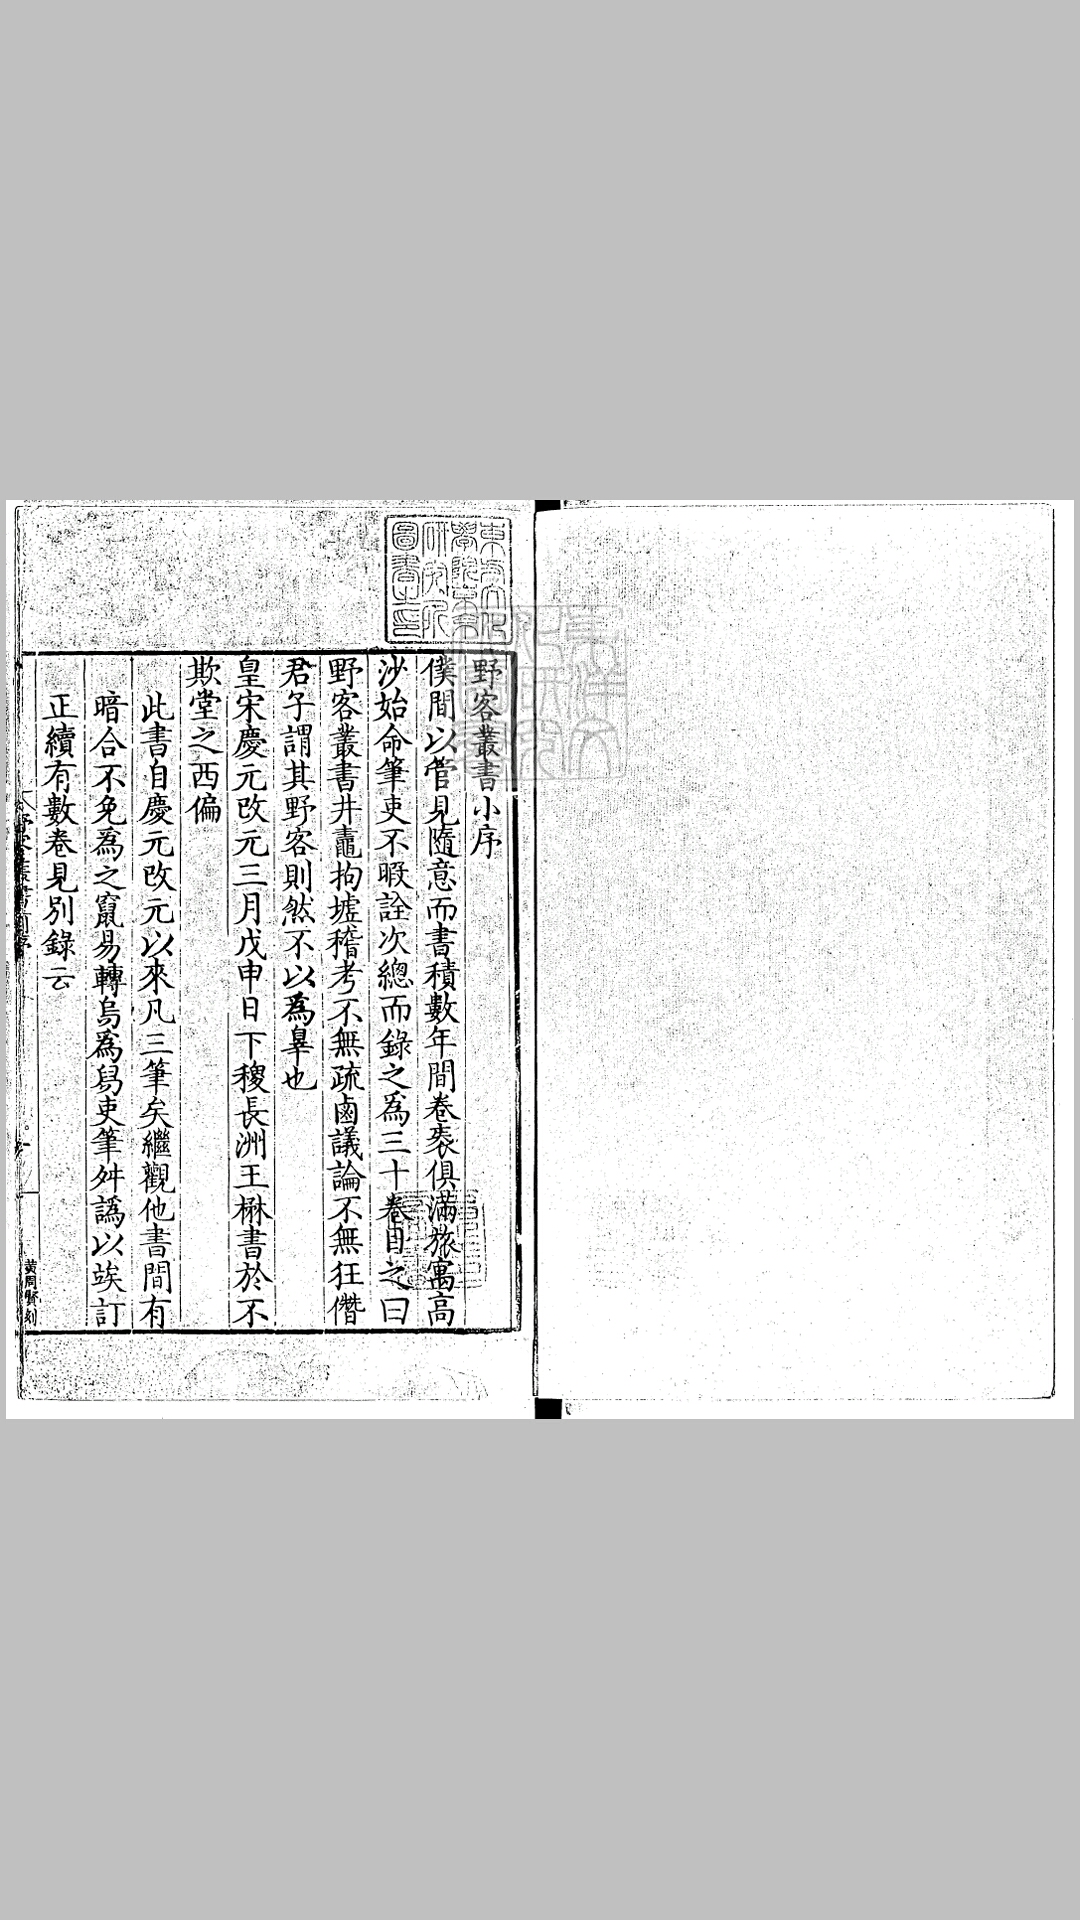 野客叢書小序
僕間以管見隨意而書積數年間卷袠俱滿旅寓高
沙始命筆吏不暇詮次總而錄之爲三十卷目之曰
野客叢書井鼃拘墟稽考不無疏鹵議論不無狂僭
君子謂其野客則然不以爲辠也
皇宋慶元改元三月戊申日下稷長洲王楙書於不
欺堂之西偏
此書自慶元改元以來凡三筆矣繼觀他書間有
暗合不免爲之竄易轉烏爲舄吏筆舛譌以竢訂
正續有數卷見別錄云
黃周賢刻